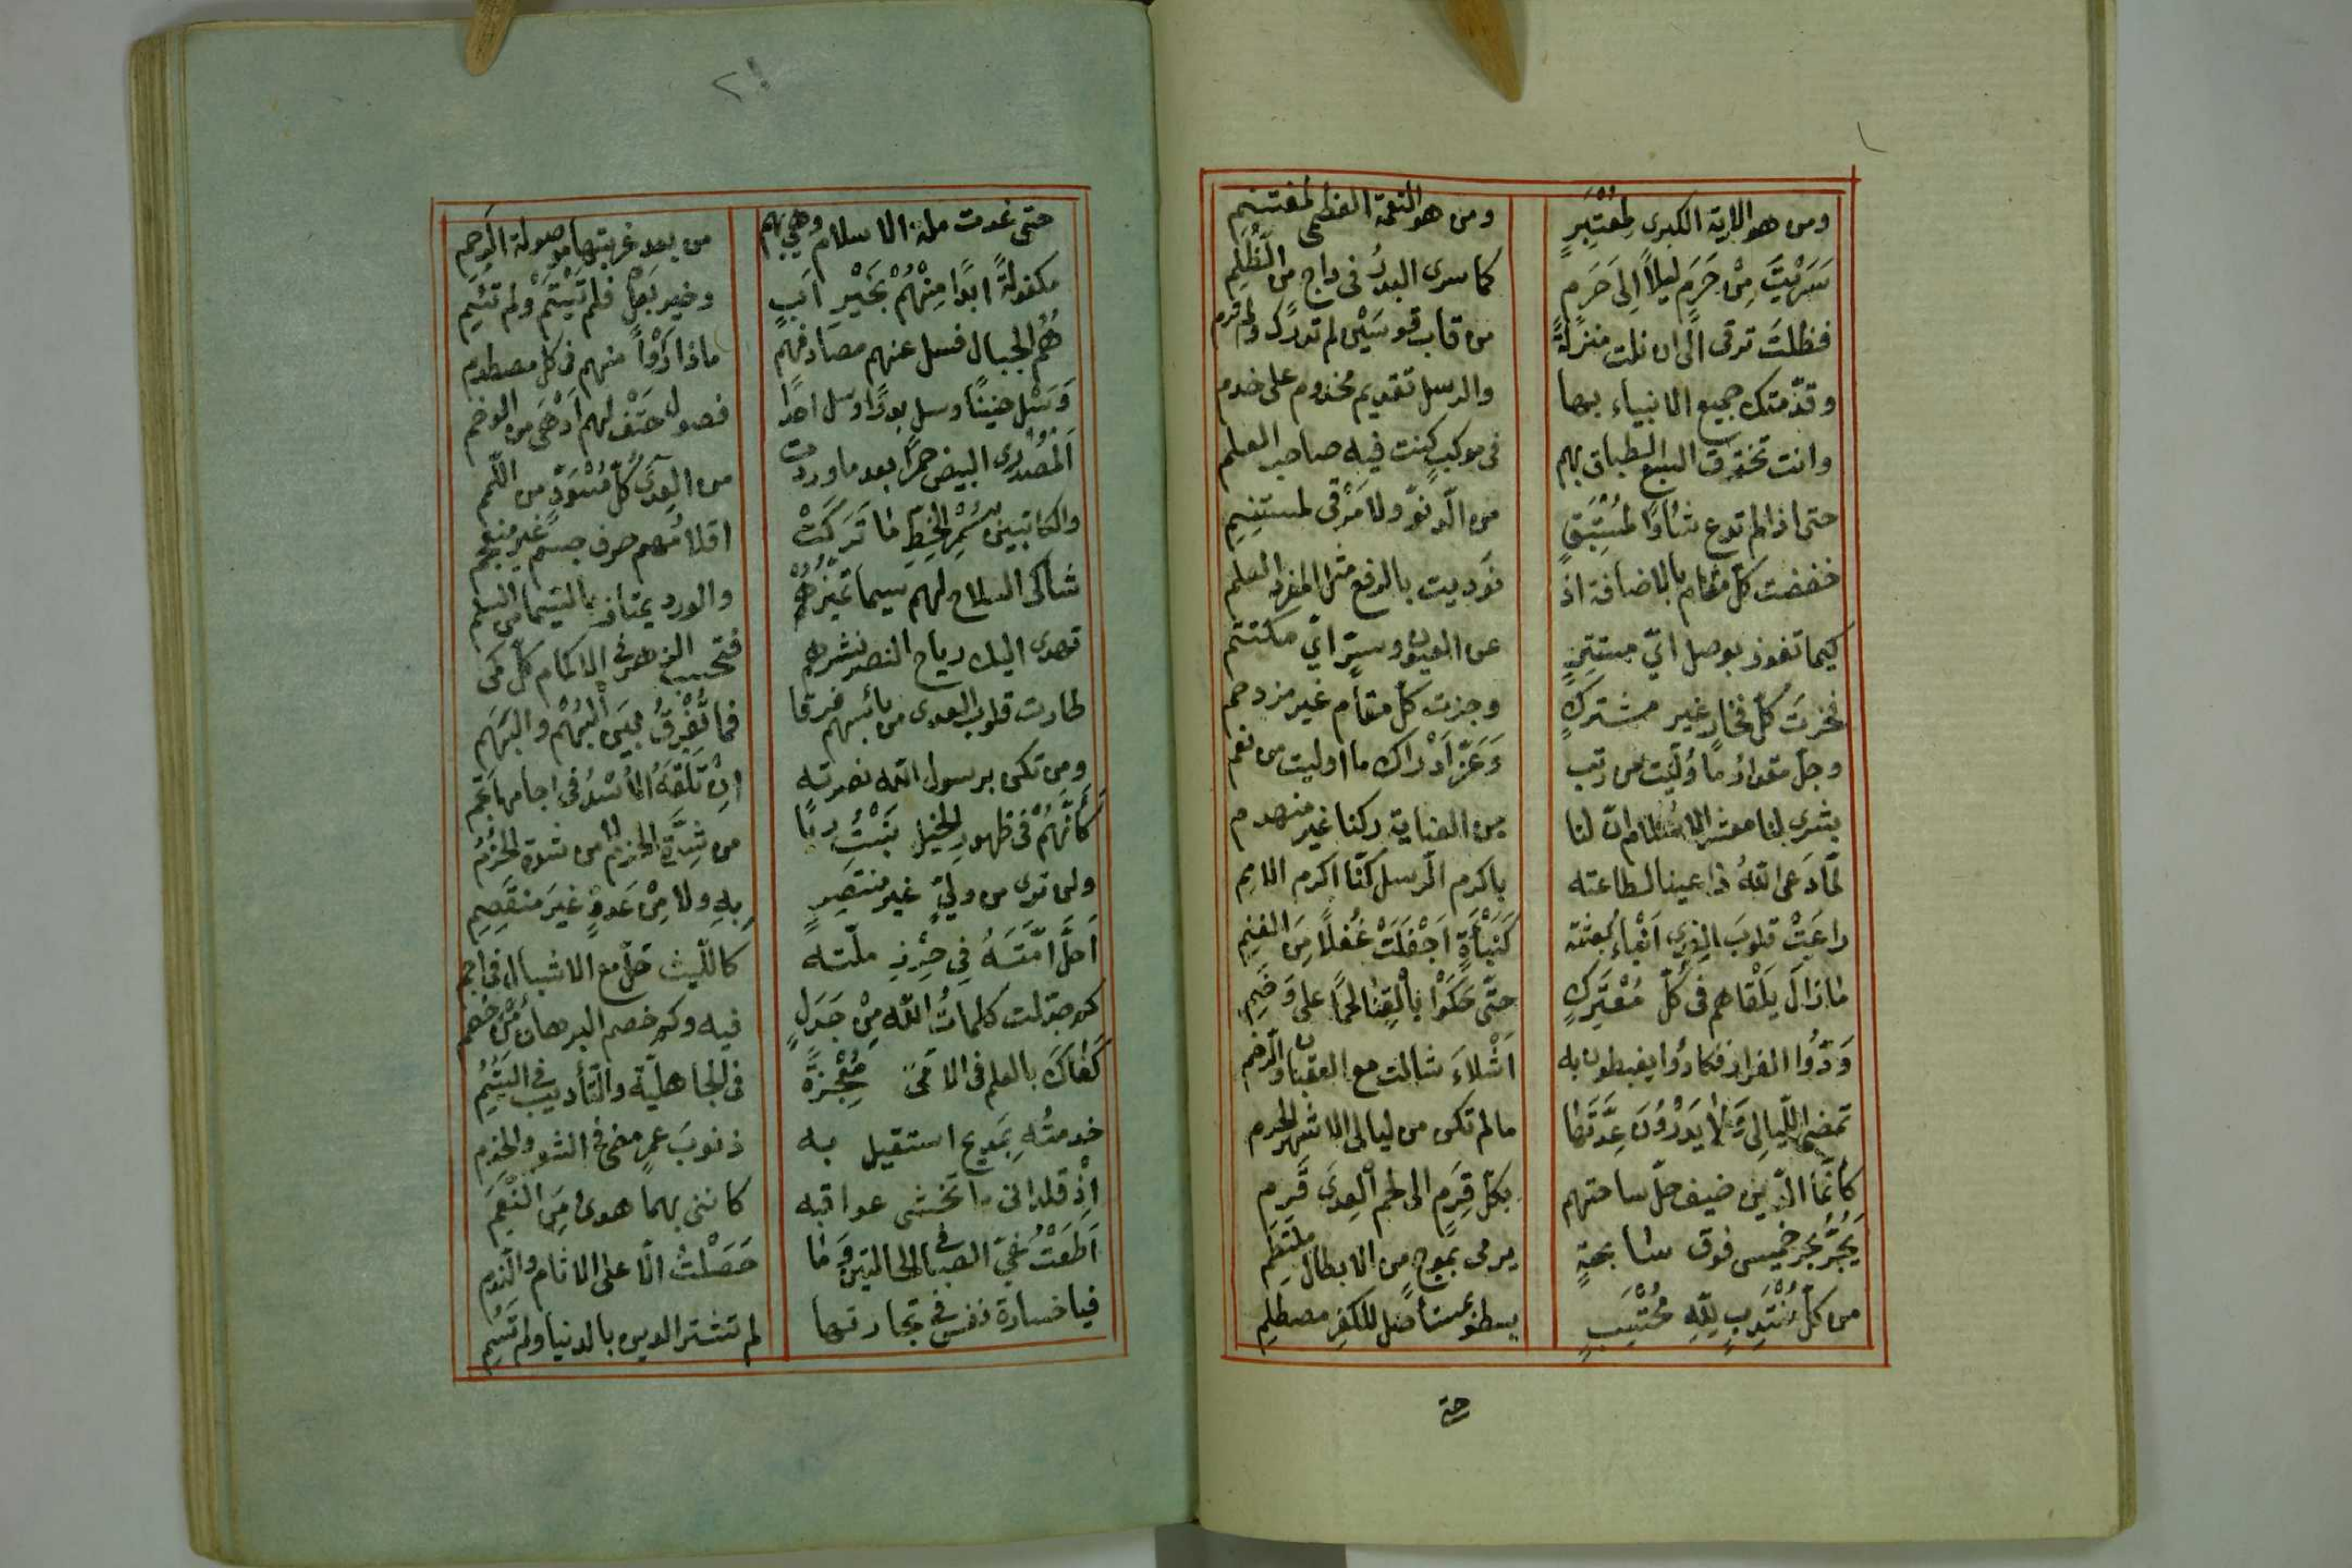 ومن هو الاية الكبرى لمعتبر ومن هو النعمة العظمى لمغتنم
سَرَيْتَ مِنْ حَرَمٍ ليلاً اِلى حَرَمٍ كما سرى البدرُ فى داجٍ من الظُّلَمِ
فظلتَ ترقى الى ان نلت منزلةً من قاب قوسَيْن لم تدرك ولم ترم
وقدّمتك جميع الانبياء بها والرسل تقديم مخدوم على خدم
وانت تخترق السبع الطباق بهم فى موكبٍ كنت فيه صاحب العلم
حتى اذا لم تدع شأوًا لمستبقٍ من الدنوّ ولا مَرْقى لمستنِمِ
خفضت كلّ مقام بالاضافة اذ نوديت بالرفع مثل المفرد العلم
كيما تفوز بوصل ايّ مستترٍ عن العيون وسترٍ ايّ مكتتم
فحزتَ كلّ فخار غير مشتركٍ وجزت كلّ مقام غير مزدحم
وجلّ مقدارُ ما وُلّيت من رتب وَعَزَّ اَدْراك ما اوليت من نعم
بشرى لنا معشر الاسلام انّ لنا من العناية ركنا غير منهدم
لمّا دَعى اللهُ داعينا لطاعته باكرم الرسل كنّا اكرم الامم
راعَتْ قلوبَ العِدى اَنْباءُ بعثته كَنَبْأَةٍ اَجْفَلَتْ غُفلًا مِنَ الغنم
مازالَ يَلْقاهم فى كلّ مُعْتَرَكٍ حتّى حَكَوْا بالقنا لحمًا على وَضَمِ
وَدُّوا الفرار فكادُوا يغبطون به اَشْلاءَ شالت مع العقبان والرخم
تمضى اللّيالى وَلا يَدْرُونَ عِدَّتَها مالم تكن من ليالى الاشهر الحرم
كأنّما الدّين ضيف حلّ ساحتهم بكلّ قَرْمٍ الى لحم العِدى قَرِم
يَجُرُّ بحر خميس فوق سابحةٍ يرمى بموجٍ من الابطال ملتطم
من كلّ مُنْتَدِبٍ لِلّهِ مُحْتَسِبٍ يسطو بمستأصل للكفر مصطلم
حتى
٢١
حتى غدت ملة الاسلام وهي بهم من بعد غربتها موصولة الرحم
مكفولةً ابدًا مِنْهُمْ بِخَيْرِ اَبٍ وخير بَعْلٍ فلم تَيْتَمْ ولم تئم
هُمُ الجبال فسل عنهم مصادمهم ماذا رَأَوْا منهم فى كل مصطدم
وَسَلْ حنينًا وسل بدرًا وسل احدًا فصول حَتْفٍ لهم اَدْهَى من الوخم
اَلْمُصْدِرِى البيض حمرًا بعد ما وردت من العِدى كلَّ مُسْوَدٍّ من اللّمم
والكاتبين بسُمْرِ الخطِّ مَا تَرَكَتْ اقلامُهم حرف جسم غير منعجم
شاكى السلاح لهم سيما تميّزُهم والورد يمتاز بالسيما من السلم
تهدى اليك رياح النصر نشرهم فتحسب الزهر فى الاكمام كلّ كمى
كَأنّهُمْ فى ظهور الخيل نَبْتُ ربًا من شِدَّةِ الحزم لا من شدة الحُزُم
طارت قلوب العدى من بأسهم فرقا فما تُفَرِّقُ بين البَهْم والبُهَمِ
ومن تكن برسول الله نصرته اِنْ تَلْقَهُ الاُسْدُ فى اجامها تجم
ولن ترى من وليٍّ غير منتصِرٍ بِهِ ولا مِنْ عَدوٍّ غيرَ منقصِمِ
اَحَلَّ اُمَّتَهُ فِى حِرْزِ ملّته كاللّيث حلّ مع الاشبال فى اجم
كم جدّلت كلماتُ اللّهِ مِنْ جَدَلٍ فيه وكم خصم البرهان مِنْ خصم
كَفاكَ بالعلم فى الامّىّ مُعْجِزَةً فى الجاهليّة والتّأديب فى اليُتُمِ
خدمتُه بمديح استقيل به ذنوبَ عمرٍ مضى فى الشعر والخدم
اِذْ قلدانى ما تخشى عواقبه كاننى بهما هدىٌ مِنَ النَّعَمِ
اَطَعْتُ غَيَّ الصبا فى الحالتين وَمَا حَصَلْتُ الّا على الاثام والنّدم
فيا خسارة نفس فى تجارتها لم تشتر الدين بالدنيا ولم تَسُمِ